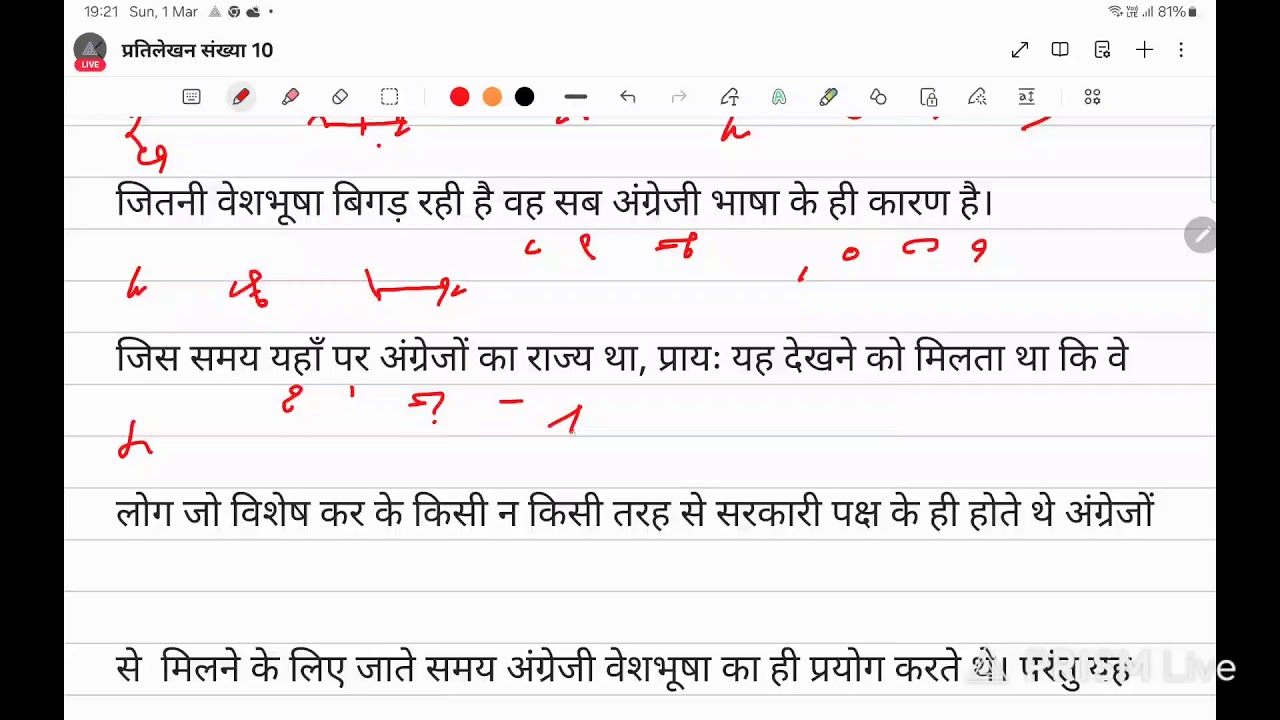 19:21 Sun, 1 Mar 81%
LIVE प्रतिलेखन संख्या 10
जितनी वेशभूषा बिगड़ रही है वह सब अंग्रेजी भाषा के ही कारण है।
जिस समय यहाँ पर अंग्रेजों का राज्य था, प्रायः यह देखने को मिलता था कि वे
लोग जो विशेष कर के किसी न किसी तरह से सरकारी पक्ष के ही होते थे अंग्रेजों
से मिलने के लिए जाते समय अंग्रेजी वेशभूषा का ही प्रयोग करते थे। परंतु यह
PRISM Live